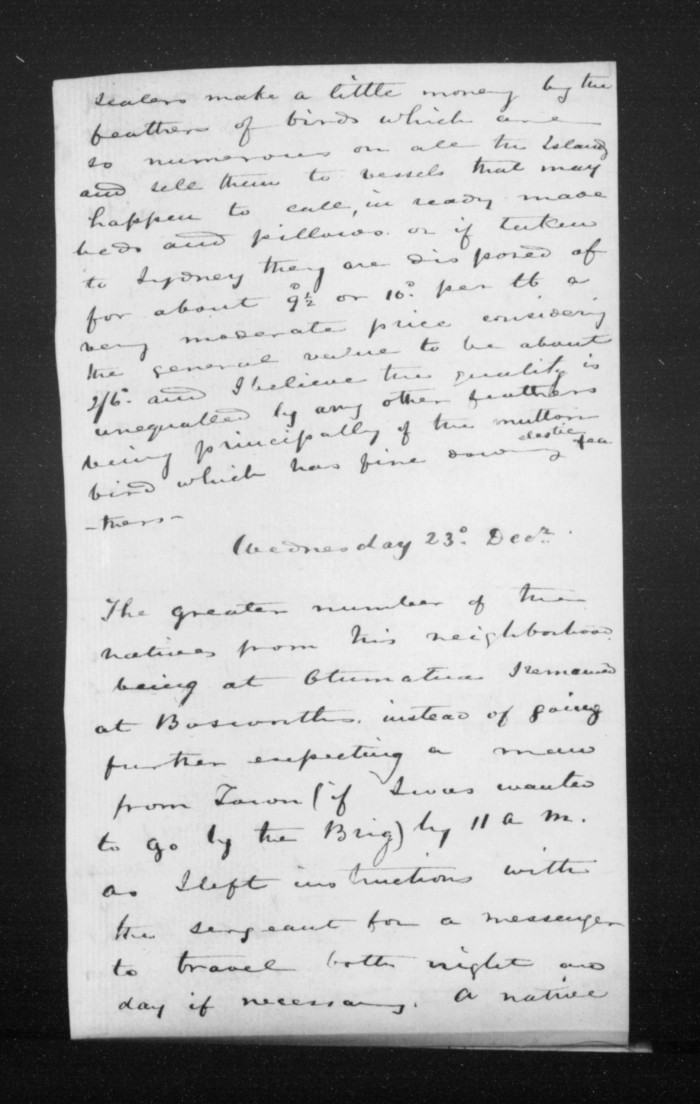 sealers make a little money by the
feathers of birds which are
so numerous on all the Islands
and sell them to vessels that may
happen to call, in ready made
beds and pillows or if taken
to Sydney they are disposed of
for about 9½ᴰ or 10ᴰ. per lb a
very moderate price considering
the general value to be about
2/6. and I believe the quality is
unequalled by any other feathers
being principally of the mutton
bird which has fine downy elastic fea
-thers-
Wednesday 23ᴰ. Decr.
The greater number of the
natives from this neighborhood
being at Otumatua I remained
at Bosworths. instead of going
further expecting a man
from Town (if I was wanted
to go by the Brig) by 11 a m.
as I left instructions with
the sergeant for a messenger
to travel both night and
day if necessary. A native